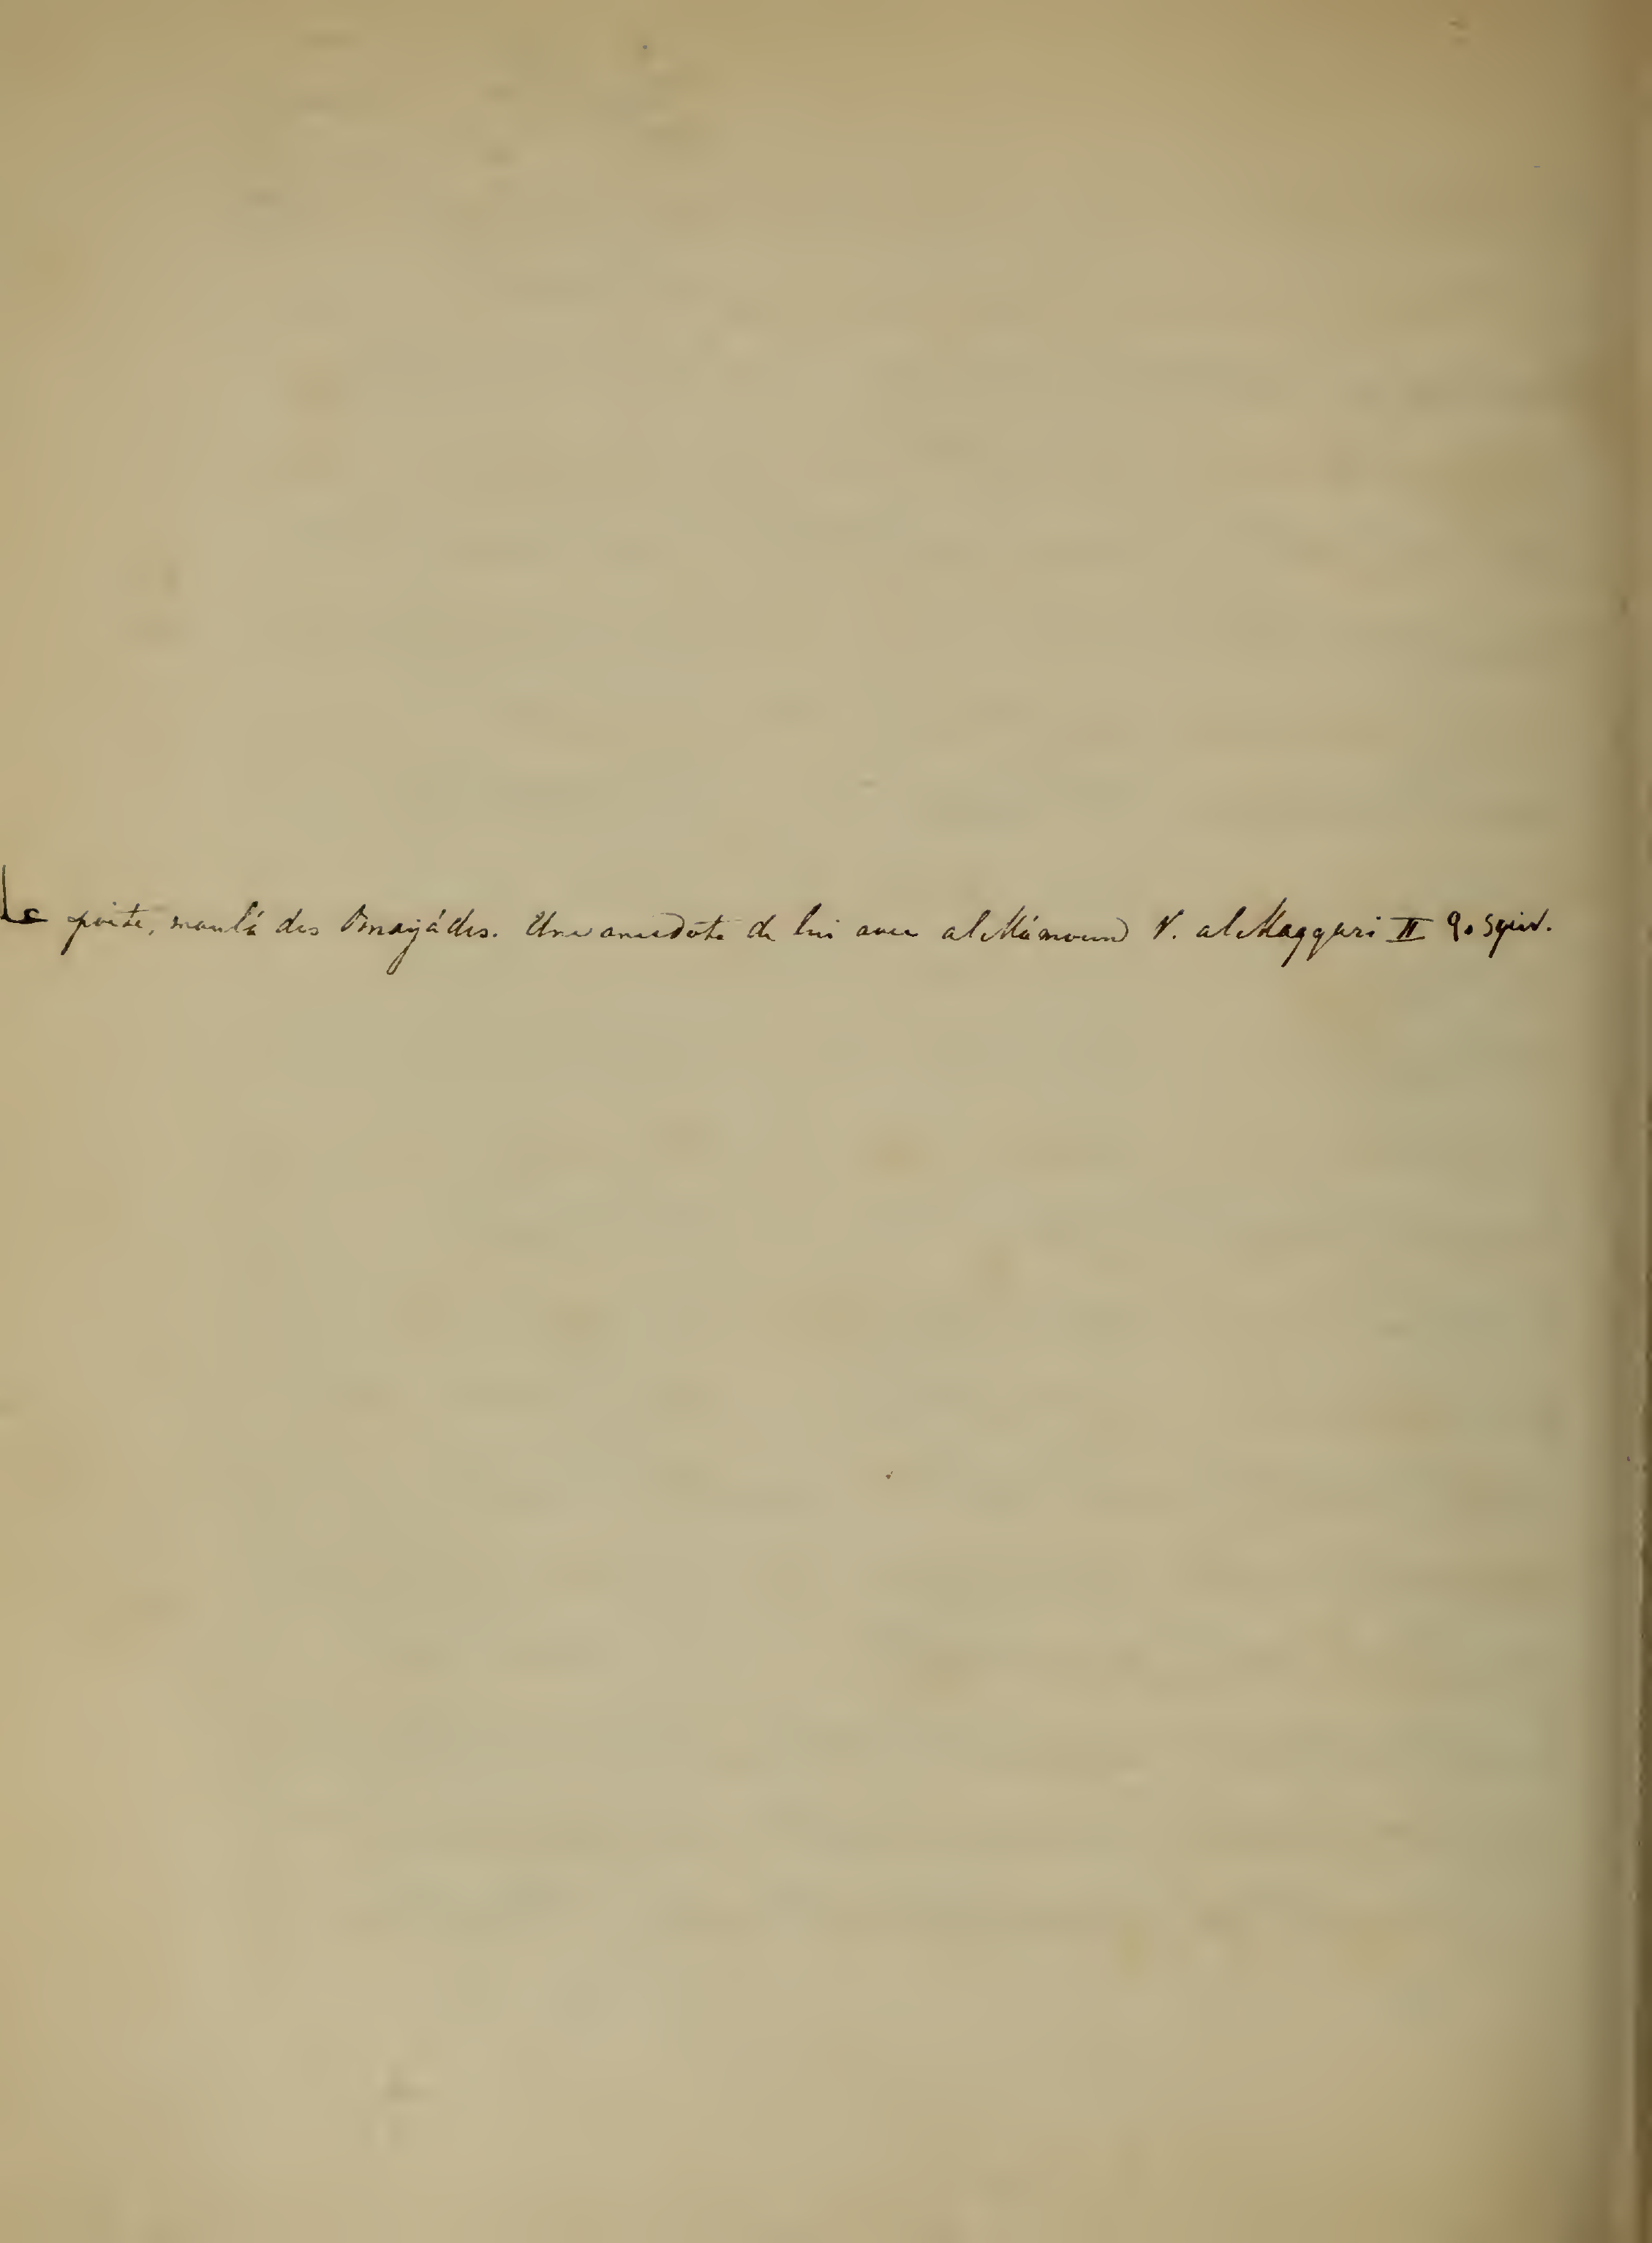 Le poëte, maulá des Omayádes. Une anecdote de lui avec al Mámoun V. al Maqqari II 90 sqq.